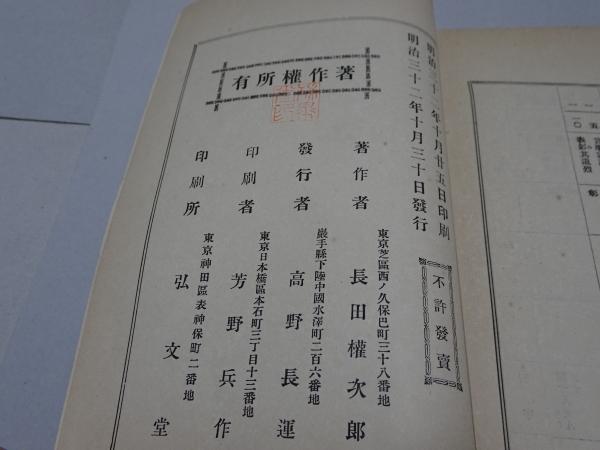 明治三十二年十月廿五日印刷
明治三十二年十月三十日發行
不許發賣
著作權所有
著作者
東京芝區西ノ久保巴町三十八番地
長田權次郎
發行者
巖手縣下陸中國水澤町二百六番地
高野長運
印刷者
東京日本橋區本石町三丁目十三番地
芳野兵作
印刷所
東京神田區表神保町二番地
弘文堂